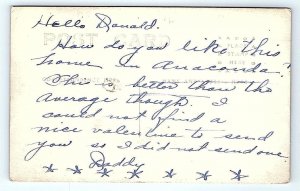 Hello Donald.
POST CARD
How do you like this
home in Anaconda?
This is better than the
average though. I
could not find a
nice valentine to send
you so I did not send one.
Daddy